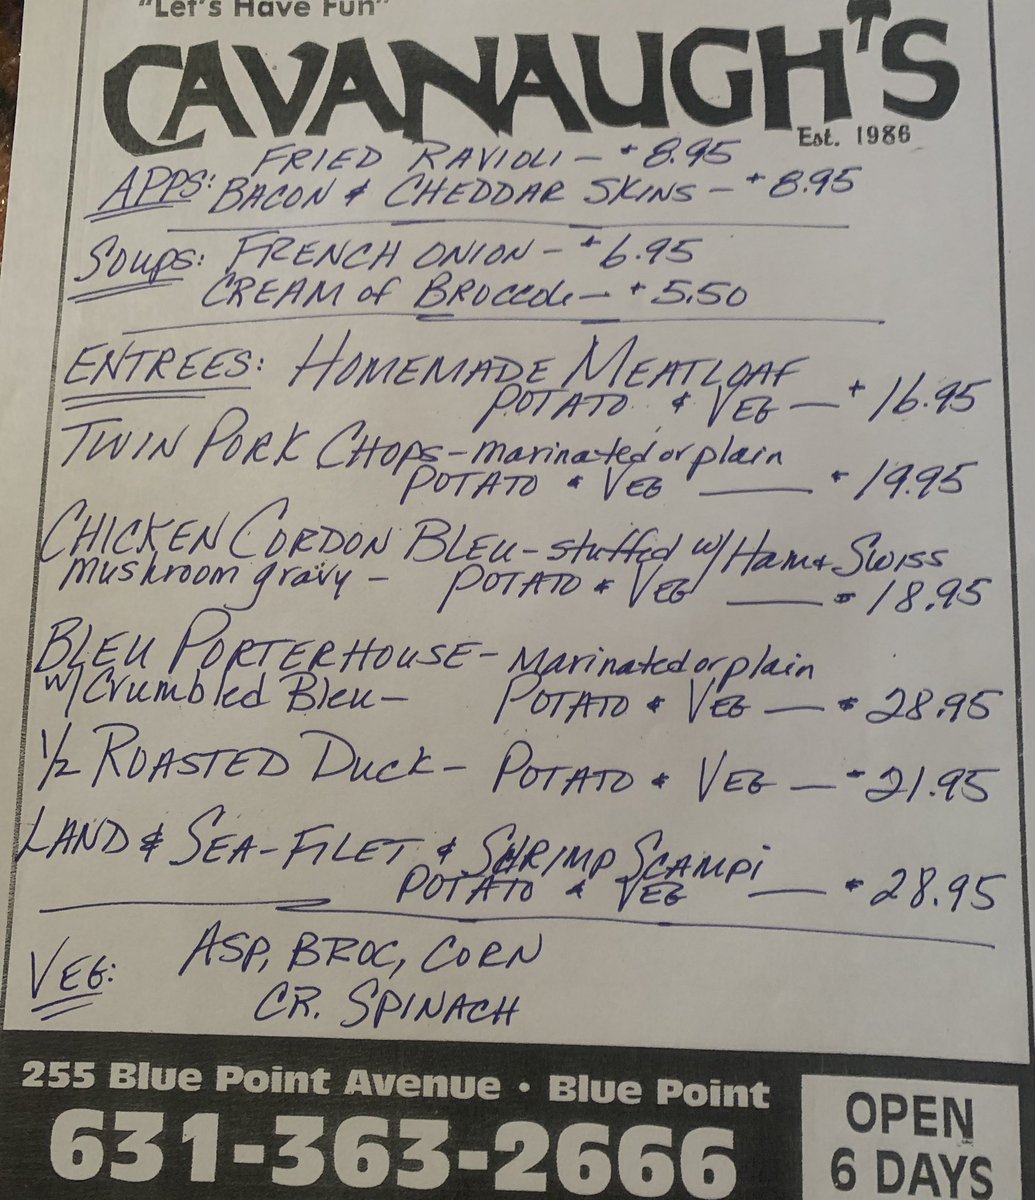 "Let's Have Fun"
CAVANAUGH'S
Est. 1986
FRIED RAVIOLI - 8.95
APPS: BACON & CHEDDAR SKINS - 8.95
SOUPS: FRENCH ONION - 6.95
CREAM of BROCCOLI - 5.50
ENTREES: HOMEMADE MEATLOAF
POTATO & VEG - 16.95
TWIN PORK CHOPS - marinated or plain
POTATO & VEG - 19.95
CHICKEN CORDON BLEU - stuffed w/ Ham & Swiss
mushroom gravy - POTATO & VEG - 18.95
BLEU PORTERHOUSE - Marinated or plain
w/ Crumbled Bleu - POTATO & VEG - 28.95
1/2 ROASTED DUCK - POTATO & VEG - 21.95
LAND & SEA - FILET & SHRIMP SCAMPi
POTATO & VEG - 28.95
VEG: ASP, BROC, CORN
CR. SPINACH
255 Blue Point Avenue • Blue Point
631-363-2666
OPEN
6 DAYS